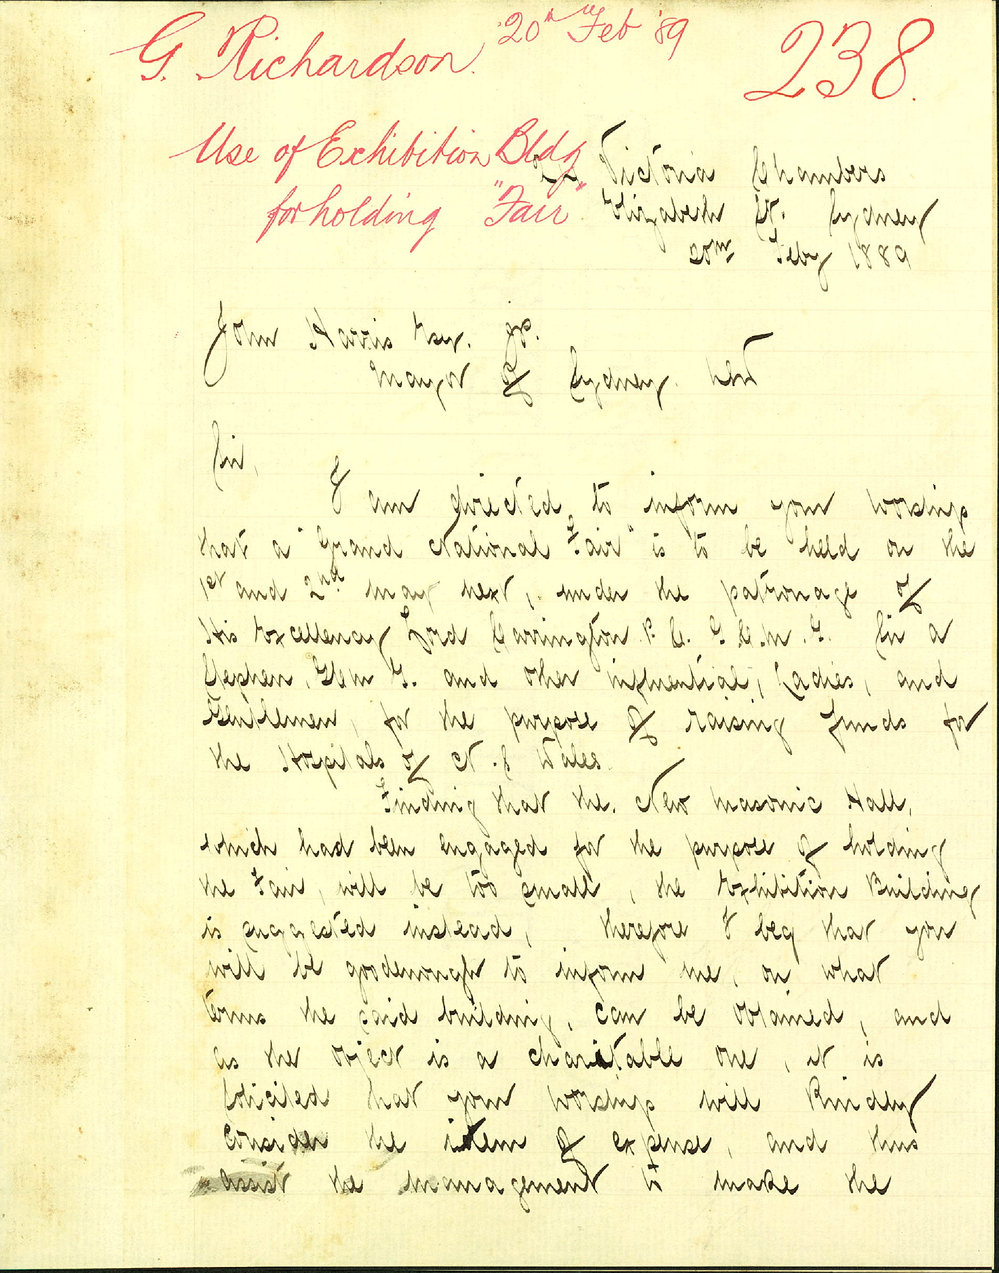 G. Richardson.
20th Feb '89
238.
Use of Exhibition Bldg
for holding "Fair"
Victoria Chambers
Elizabeth St. Sydney
20th Feby 1889
John Harris Esq. jp.
Mayor of Sydney
Sir,
I am directed to inform your worship
that a "Grand National Fair" is to be held on the
1st and 2nd May next, under the patronage of
His Excellency Lord Carrington P.C. G.C.M.G. Sir A
Stephen, G.C.M.G. and other influential, Ladies, and
Gentlemen, for the purpose of raising funds for
the Hospitals of N.S Wales.
Finding that the New Masonic Hall,
which had been engaged for the purpose of holding
the Fair, will be too small, the Exhibition Building
is suggested instead, therefore I beg that you
will be goodenough to inform me, on what
terms the said building, can be obtained, and
as the object is a charitable one, it is
solicited that your worship will kindly
consider the item of expense, and thus
assist the management to make the